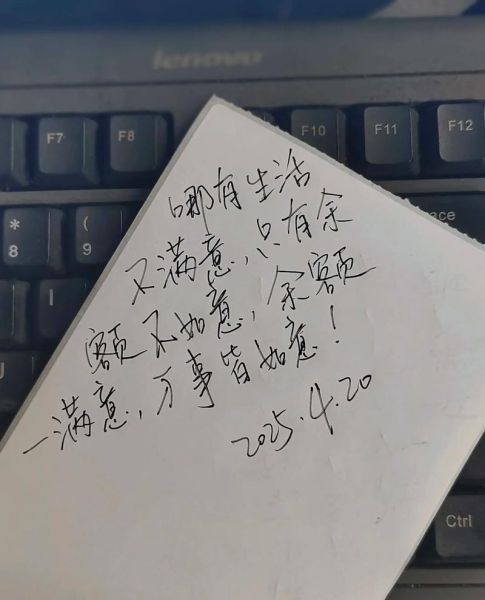 lenovo
F7 F8 F10 F11 F12
* 8 ( 9
I
U
Ctrl
哪有生活
不满意,只有余
额不如意,余额
一满意,万事皆如意!
2025.4.20